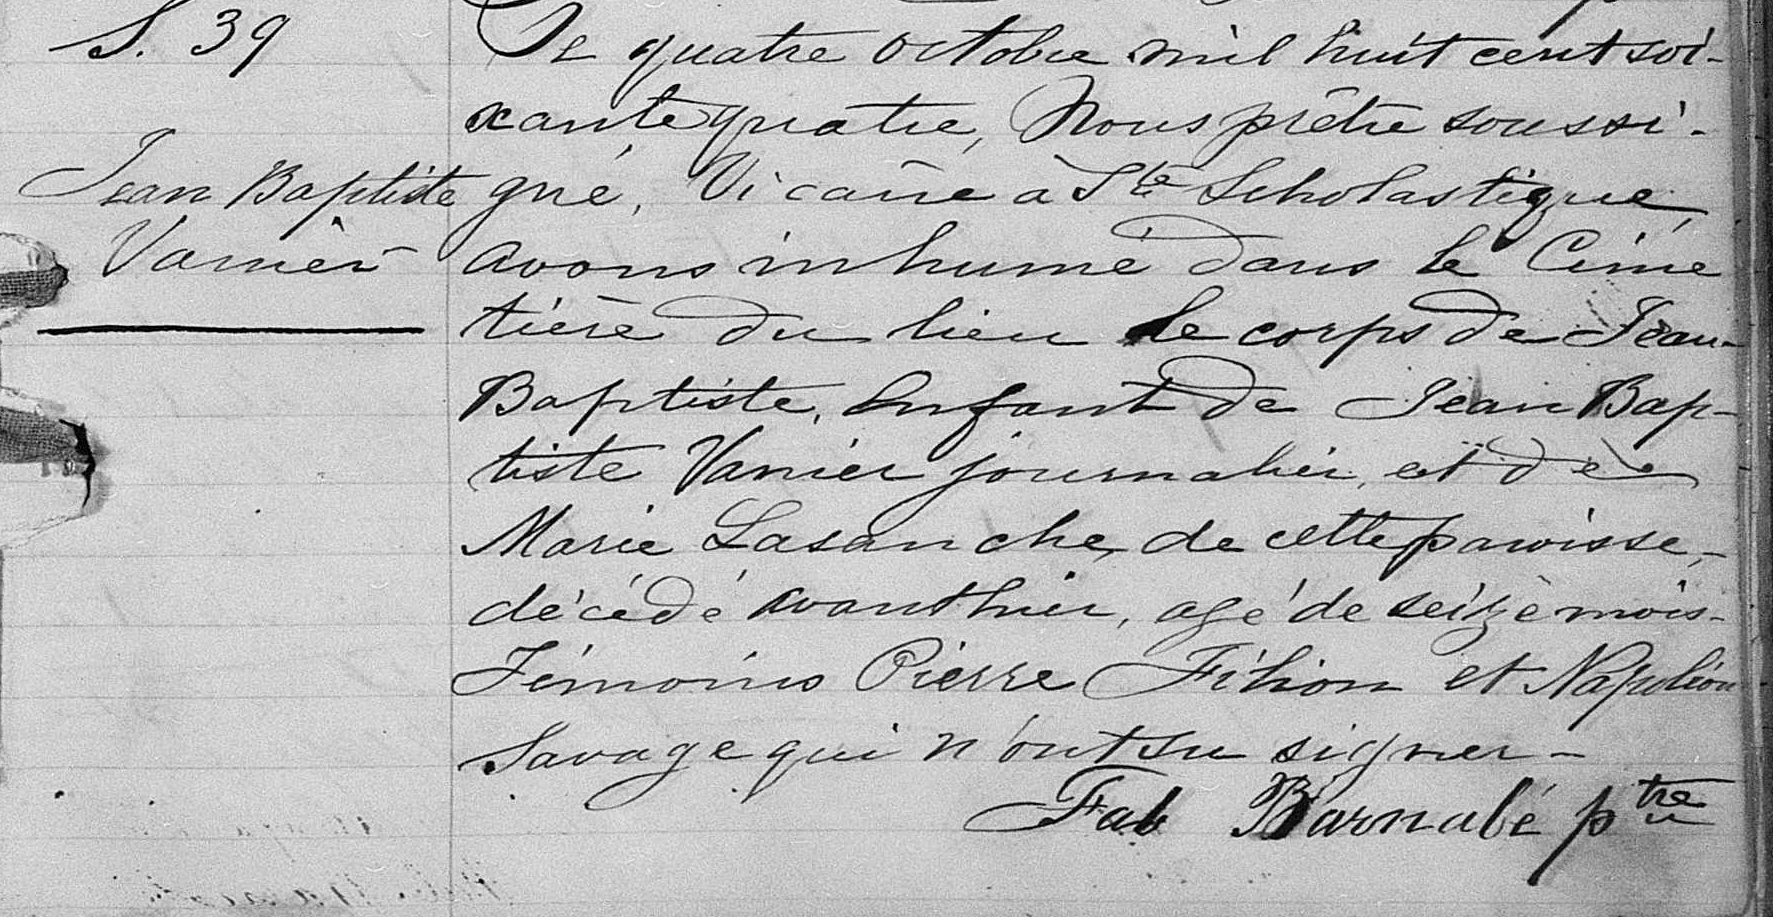 S. 39
Jean Baptiste
Vanier
Le quatre octobre mil huit cent soi-
xante quatre, Nous prêtre soussi-
gné, Vicaire à Ste Scholastique,
avons inhumé dans le Cime
tière du lieu le corps de Jean-
Baptiste, Enfant de Jean Bap-
tiste Vanier journalier, et de
Marie Lasanche, de cette paroisse,
décédé avanthier, agé de seize mois-
Témoins Pierre Filion et Napoléon
Savage qui n'ont su signer -
Fab Barnabé ptre